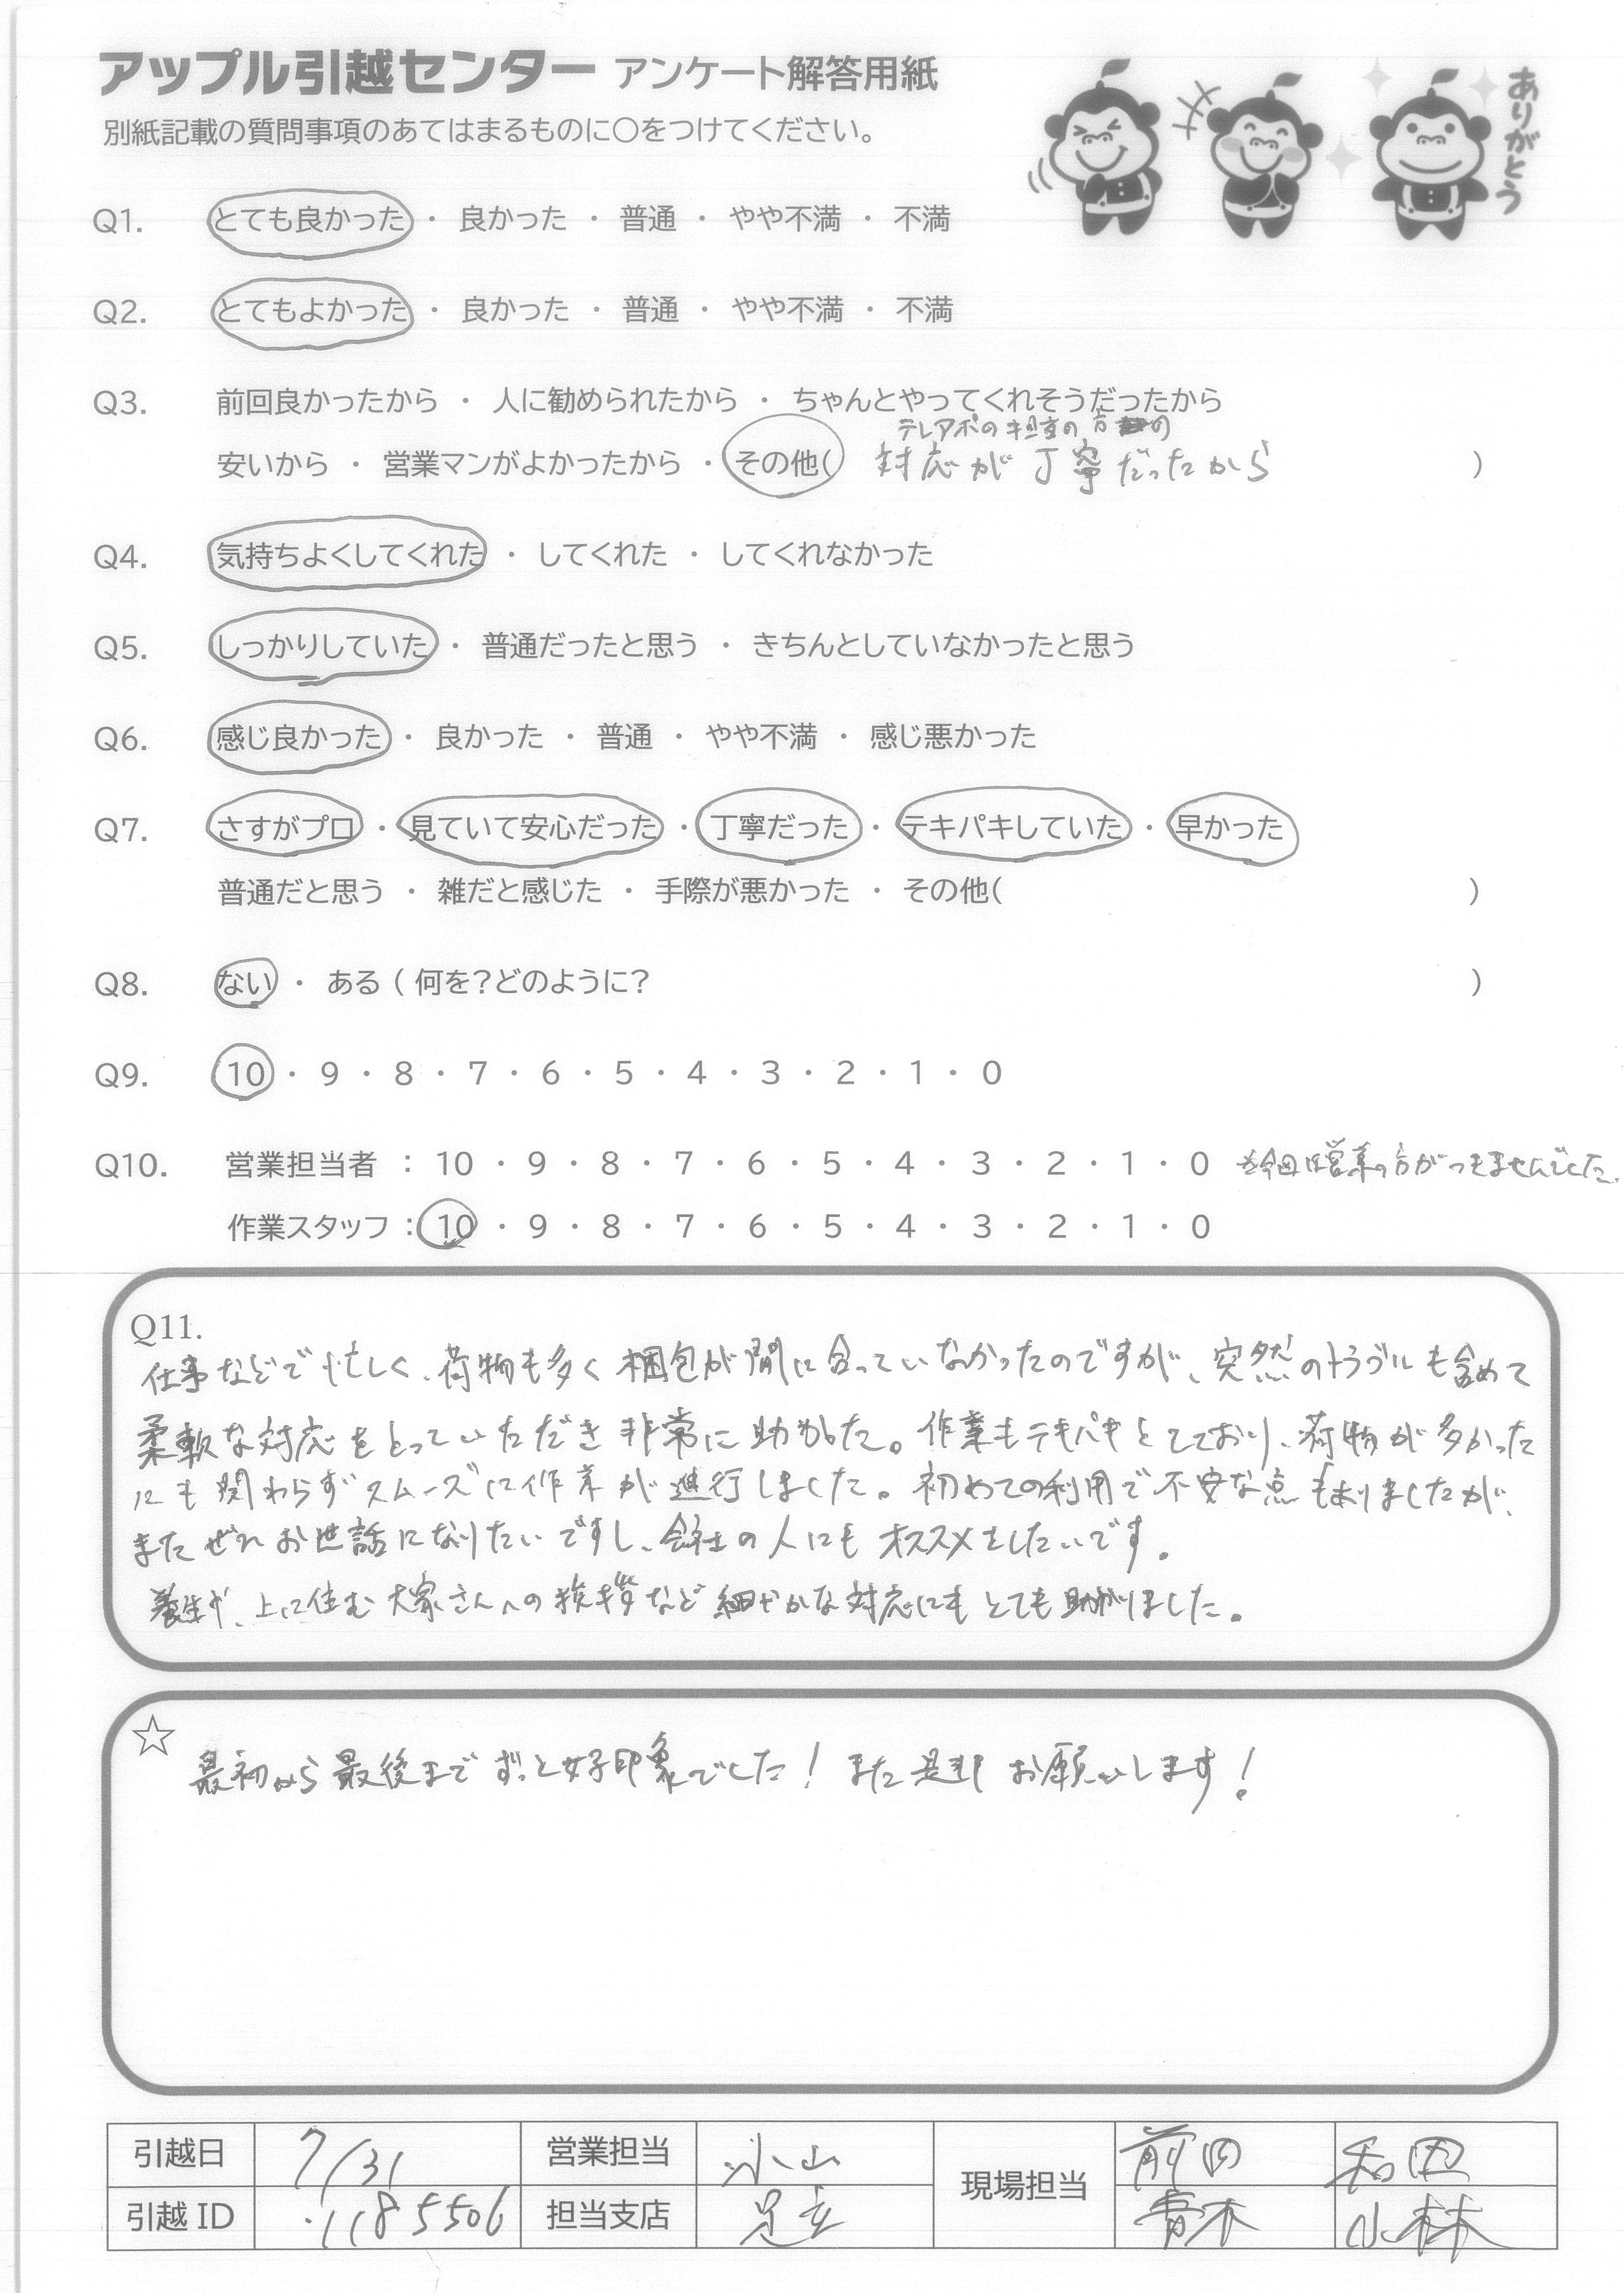 アップル引越センター アンケート解答用紙
ありがとう
別紙記載の質問事項のあてはまるものに○をつけてください。
Q1. とても良かった ・ 良かった ・ 普通 ・ やや不満 ・ 不満
Q2. とてもよかった ・ 良かった ・ 普通 ・ やや不満 ・ 不満
Q3. 前回良かったから ・ 人に勧められたから ・ ちゃんとやってくれそうだったから
テレアポの担当の方の
安いから ・ 営業マンがよかったから ・ その他( 対応が丁寧だったから )
Q4. 気持ちよくしてくれた ・ してくれた ・ してくれなかった
Q5. しっかりしていた ・ 普通だったと思う ・ きちんとしていなかったと思う
Q6. 感じ良かった ・ 良かった ・ 普通 ・ やや不満 ・ 感じ悪かった
Q7. さすがプロ ・ 見ていて安心だった ・ 丁寧だった ・ テキパキしていた ・ 早かった
普通だと思う ・ 雑だと感じた ・ 手際が悪かった ・ その他( )
Q8. ない ・ ある ( 何を?どのように? )
Q9. 10 ・ 9 ・ 8 ・ 7 ・ 6 ・ 5 ・ 4 ・ 3 ・ 2 ・ 1 ・ 0
Q10. 営業担当者 : 10 ・ 9 ・ 8 ・ 7 ・ 6 ・ 5 ・ 4 ・ 3 ・ 2 ・ 1 ・ 0 ※今回は営業の方がつきませんでした。
作業スタッフ : 10 ・ 9 ・ 8 ・ 7 ・ 6 ・ 5 ・ 4 ・ 3 ・ 2 ・ 1 ・ 0
Q11.
仕事などで忙しく、荷物も多く梱包が間に合っていなかったのですが、突然のトラブルも含めて
柔軟な対応をとっていただき非常に助かった。作業もテキパキとしており、荷物が多かった
にも関わらずスムーズに作業が進行しました。初めての利用で不安な点もありましたが、
またぜひお世話になりたいですし、会社の人にもオススメをしたいです。
養生や、上に住む大家さんへの挨拶など細やかな対応にもとても助かりました。
☆
最初から最後までずっと好印象でした！また是非お願いします！
引越日 7/31 営業担当 小山 現場担当 前田 和田
引越ID 1185506 担当支店 足立 青木 小林